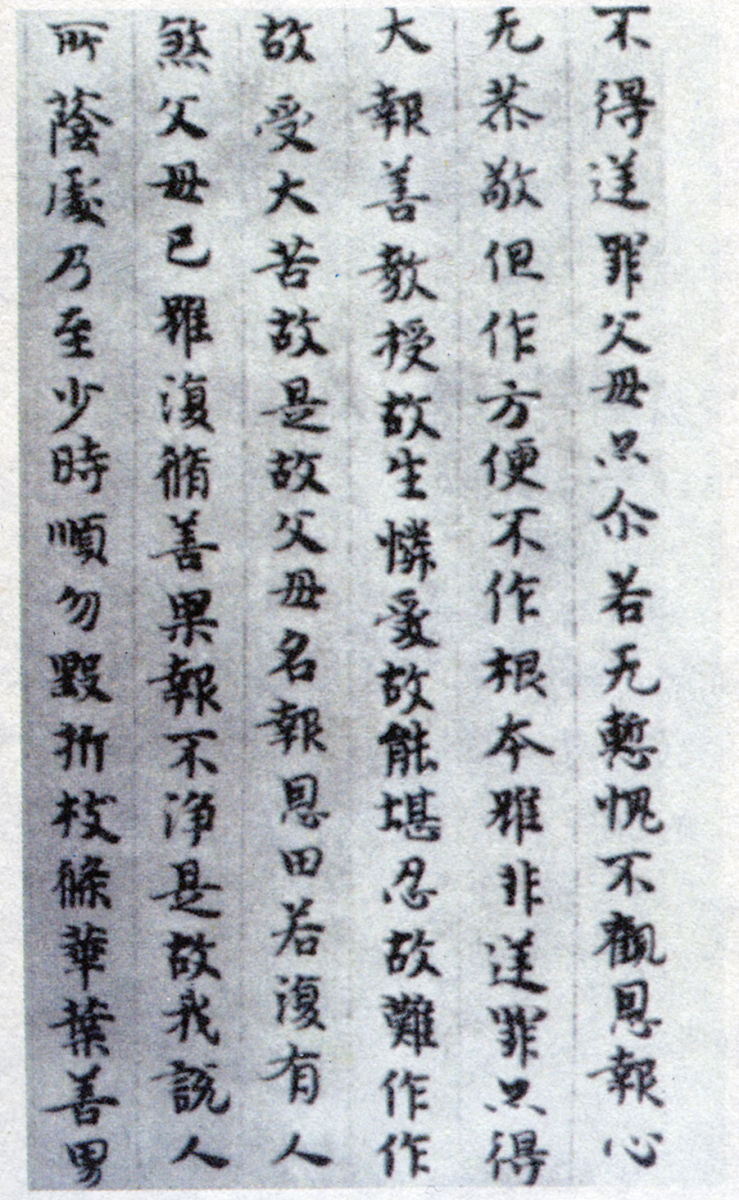 不得逆罪父母亦尒若无慙愧不觀恩報心
无恭敬但作方便不作根本雖非逆罪亦得
大報善教授故生憐愛故能堪忍故難作作
故受大苦故是故父母名報恩田若復有人
煞父母已雖復脩善果報不淨是故我說人
所蔭處乃至少時順勿毀折枝條華葉善男